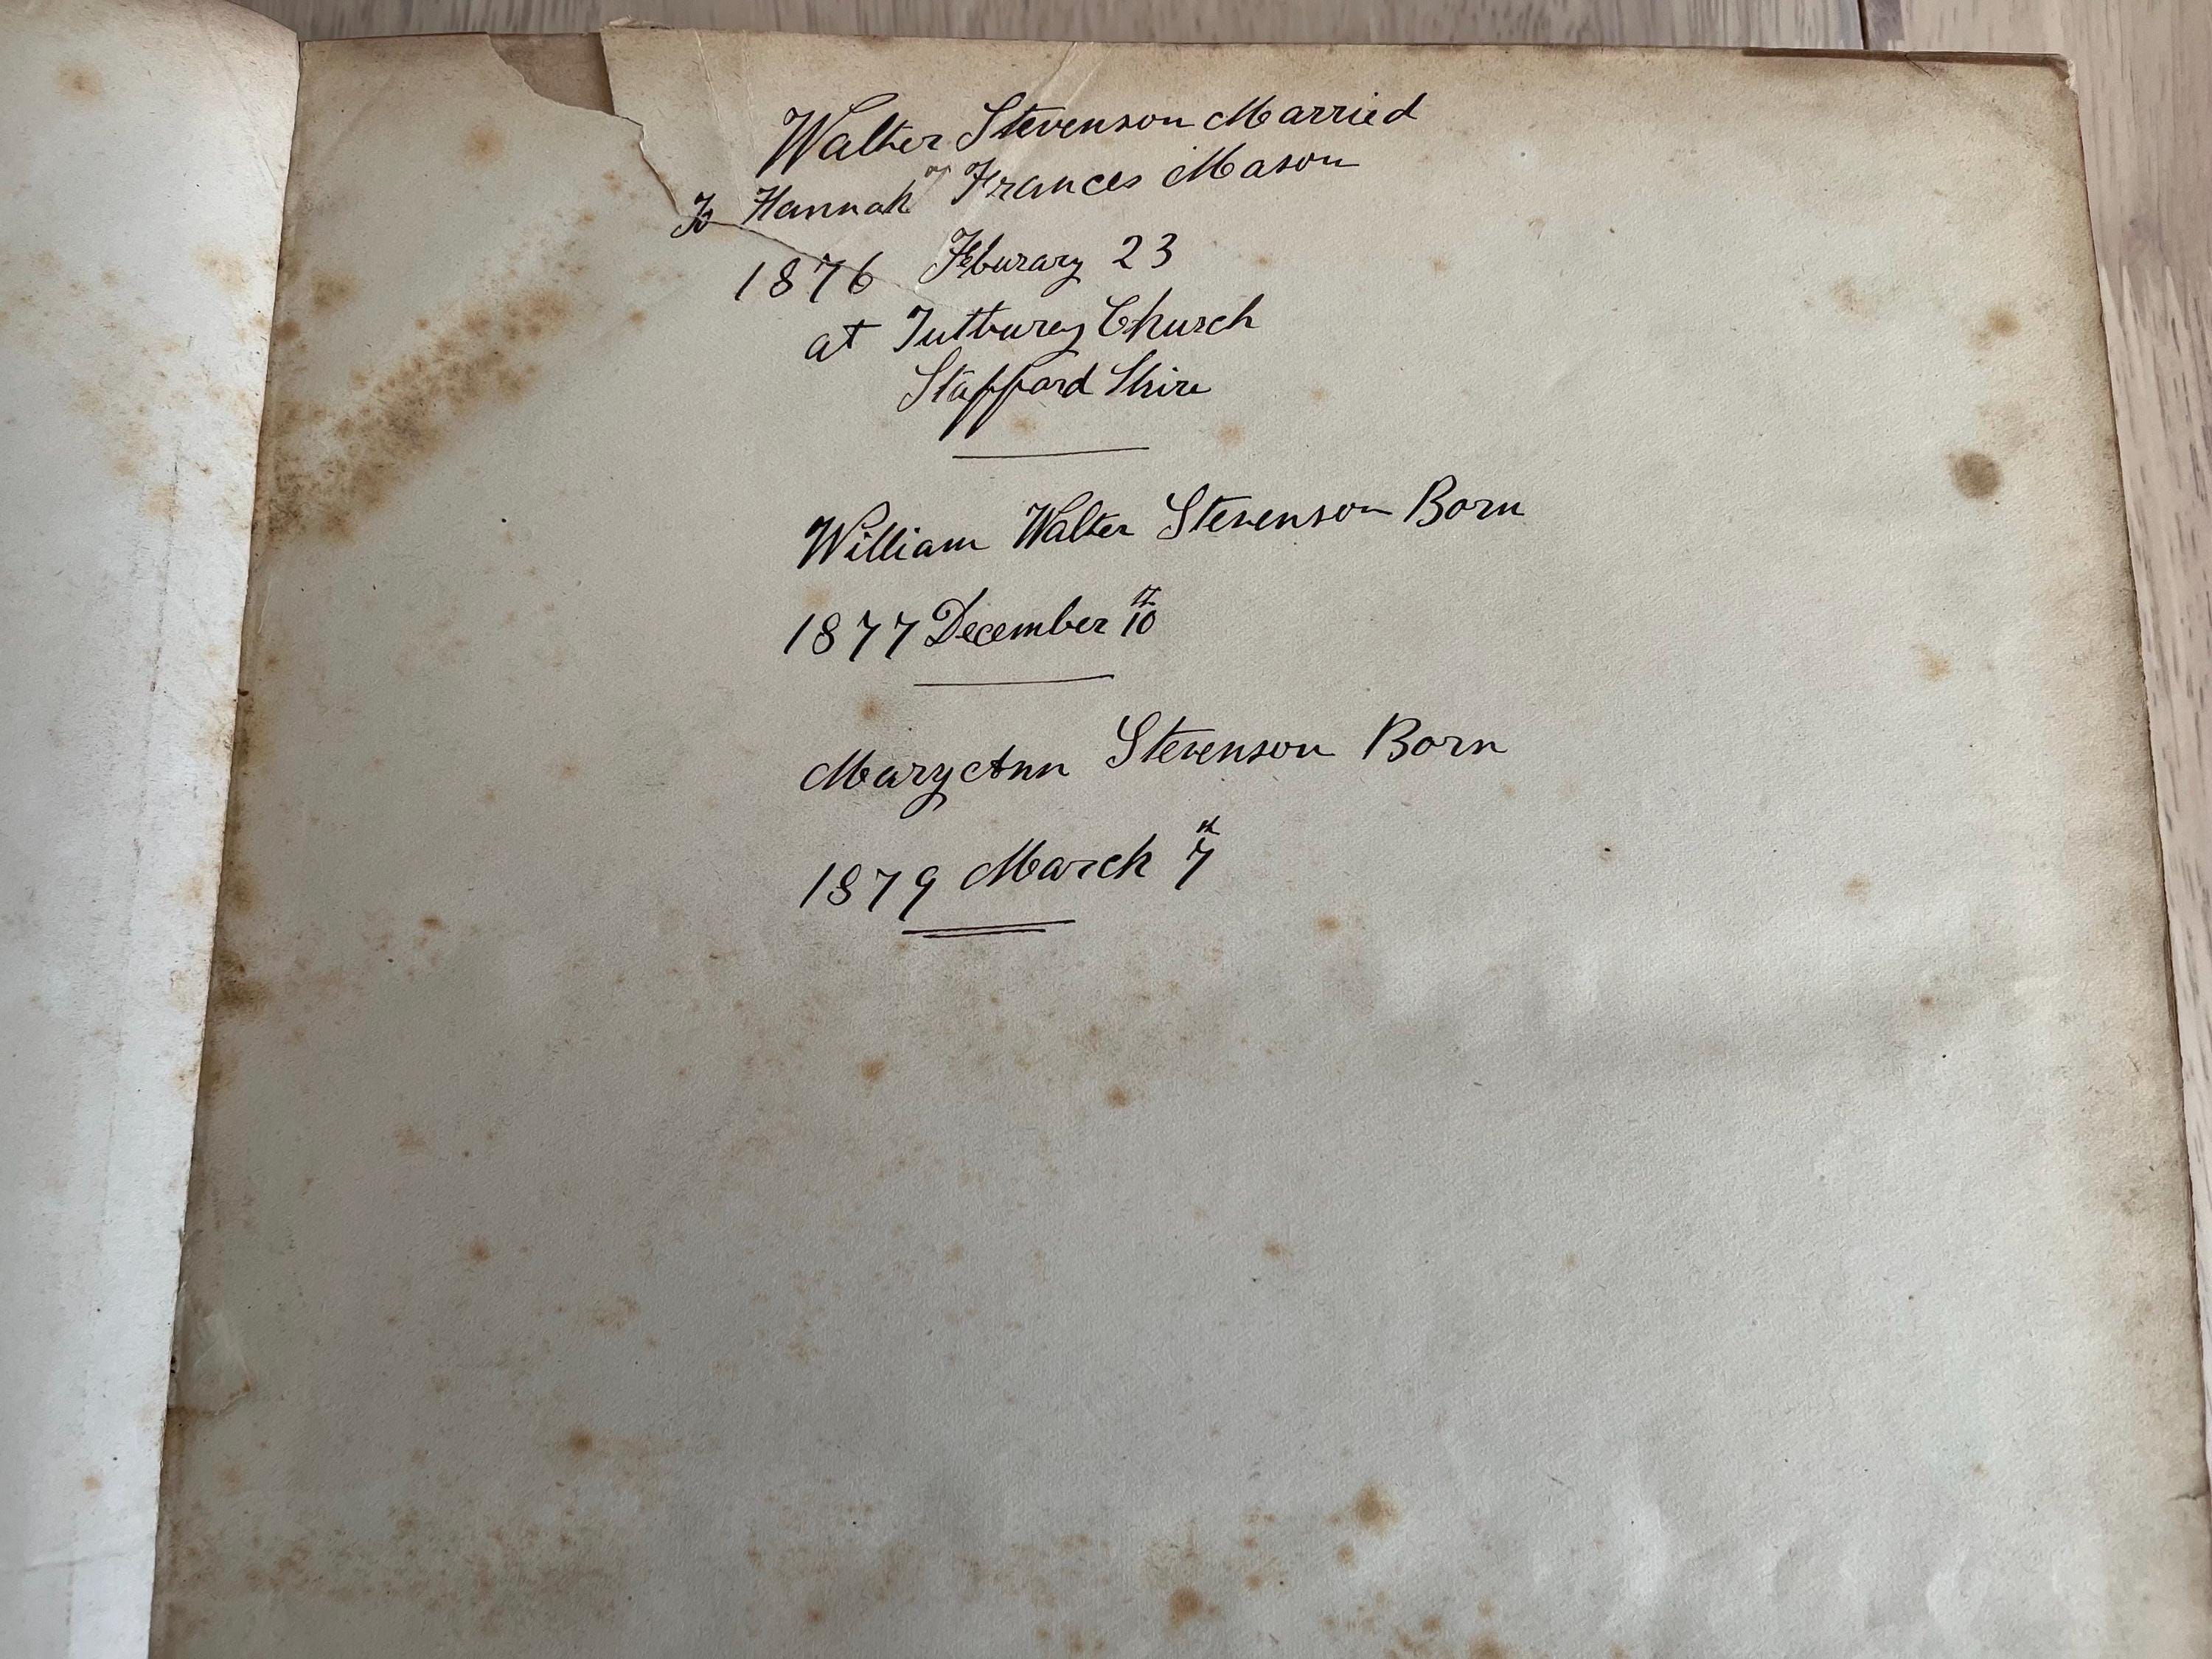 Walter Stevenson Married
To Hannah Frances Mason
1876 Feburary 23
at Tutbury Church
Stafford Shire
William Walter Stevenson Born
1877 December 10th
Mary Ann Stevenson Born
1879 March 7th